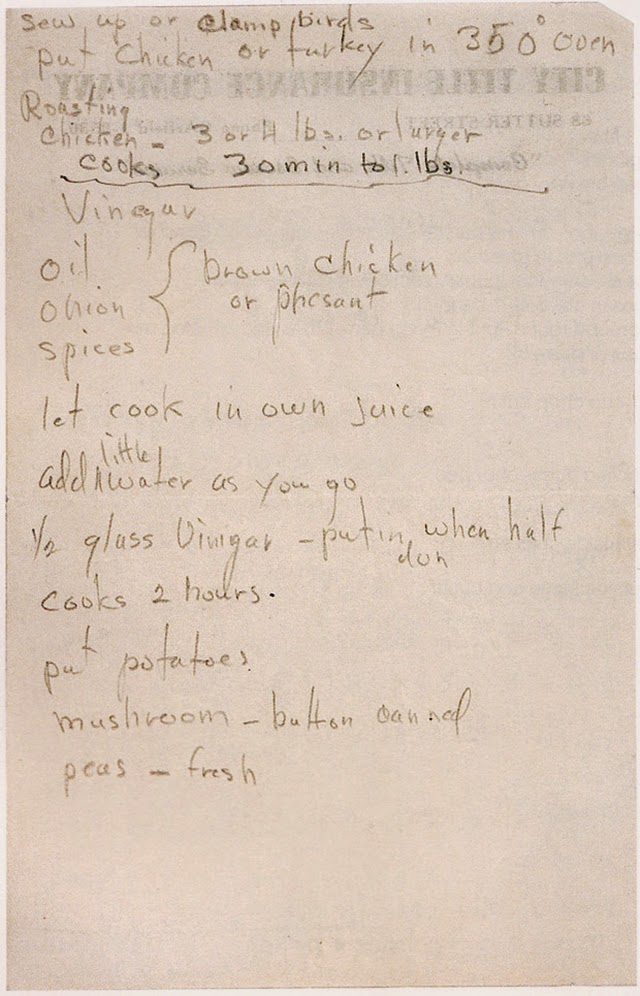 sew up or clamp birds
put chicken or turkey in 350° oven
CITY TITLE INSURANCE COMPANY
SUTTER STREET
Roasting
Chicken - 3 or 4 lbs. or larger
cooks 30 min to 1. lbs.
Vinegar
oil
onion
spices
brown chicken
or phesant
let cook in own juice
add little water as you go
1/2 glass Vinigar - put in when half
don
cooks 2 hours.
put potatoes
mushroom - button canned
peas - fresh